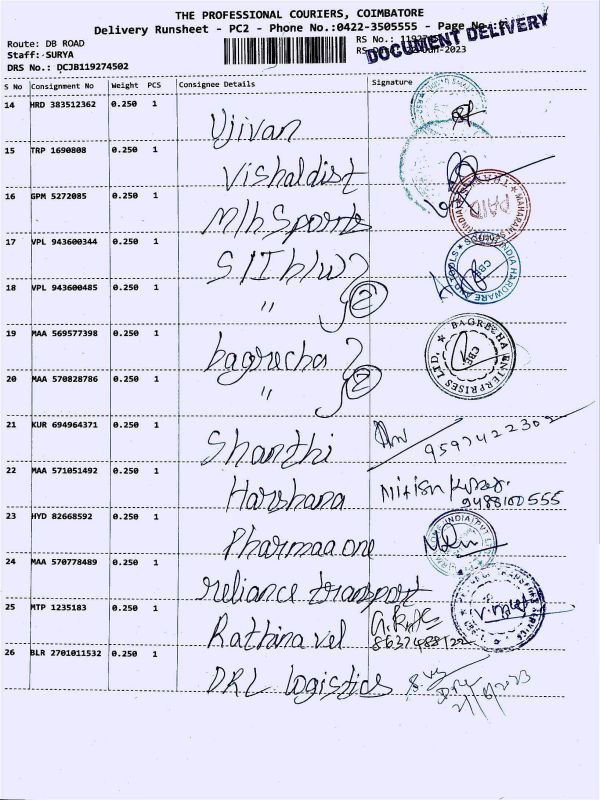 THE PROFESSIONAL COURIERS, COIMBATORE
Delivery Runsheet - PC2 - Phone No.:0422-3505555 - Page No.:
Route: DB ROAD
RS No.:
Staff: SURYA
DOCUMENT DELIVERY
DRS No.: DCJB119274502
S No Consignment No Weight PCS Consignee Details Signature
14 HRD 383512362 0.250 1
Ujivan
15 TRP 1690808 0.250 1
Vishal dist
16 GPM 5272085 0.250 1
M/h Sports
PAID
17 VPL 943600344 0.250 1
SITh/w
18 VPL 943600485 0.250 1
" 2
19 MAA 569577398 0.250 1
bagrecha
BAGRECHA ENTERPRISES LTD.
CBE
20 MAA 570828786 0.250 1
" 2
21 KUR 694964371 0.250 1
Shanthi
22 MAA 571051492 0.250 1
Harshana
9488100555
23 HYD 82668592 0.250 1
Pharmaa one
24 MAA 570778489 0.250 1
reliance transport
25 MTP 1235183 0.250 1
Rathina vel
26 BLR 2701011532 0.250 1
DRL logistics